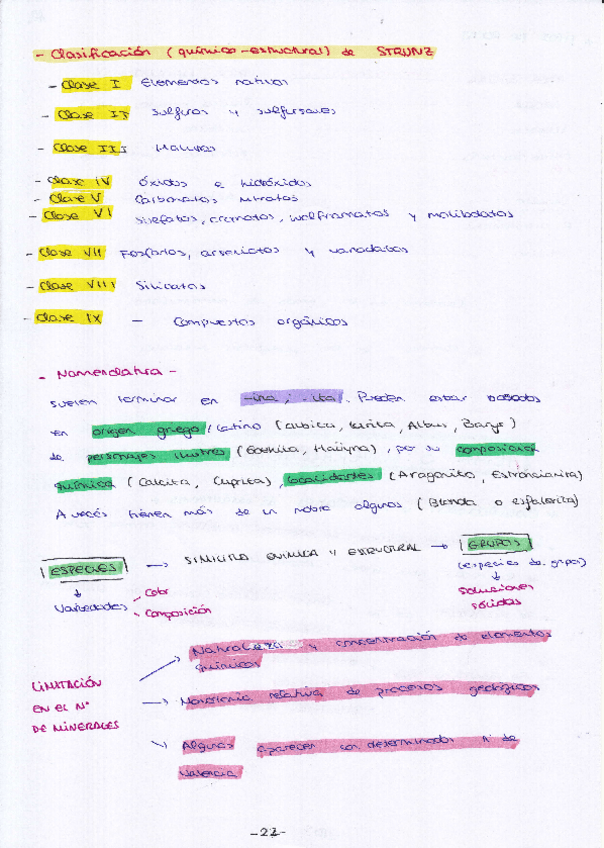 - Clasificación (químico-estructural) de STRUNZ
- Clase I Elementos nativos
- Clase II Sulfuros y sulfosales
- Clase III Haluros
- Clase IV Óxidos e hidróxidos
- Clase V Carbonatos nitratos
- Clase VI Sulfatos, cromatos, wolframatos y molibdatos
- Clase VII Fosfatos, arseniatos y vanadatos
- Clase VIII Silicatos
- Clase IX - Compuestos orgánicos
- Nomenclatura -
suelen terminar en -ina, -ita. Pueden estar basados
en origen griego / Latino (Cubica, Albus, Barys)
de personajes ilustres (Goethita, Haüyna), por su composición
química (Calcita, Cuprita), localidades (Aragonito, Estroncianita)
A veces tienen más de un nombre algunos (Blenda o esfalerita)
ESPECIES → SIMILITUD QUIMICA Y ESTRUCTURAL → GRUPOS
(especies de grupo)
↓
Variedades
Color
Composición
↓
soluciones
sólidas
LIMITACIÓN
EN EL Nº
DE MINERALES
Naturaleza y concentración de elementos
químicos
relativa de procesos geológicos
Algunos aparecen con determinado n de
valencia
-22-